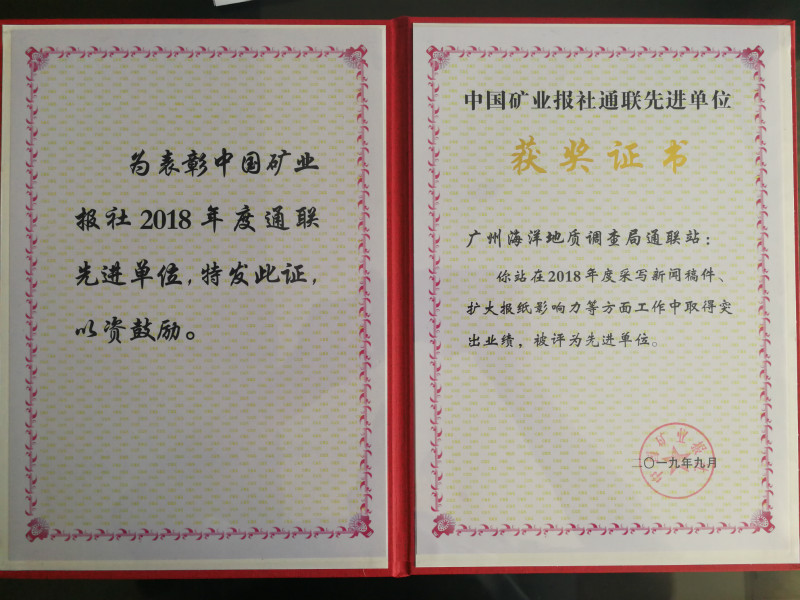 为表彰中国矿业
报社2018年度通联
先进单位,特发此证,
以资鼓励。
中国矿业报社通联先进单位
获奖证书
广州海洋地质调查局通联站:
你站在2018年度采写新闻稿件、
扩大报纸影响力等方面工作中取得突
出业绩，被评为先进单位。
中国矿业报社
二〇一九年九月